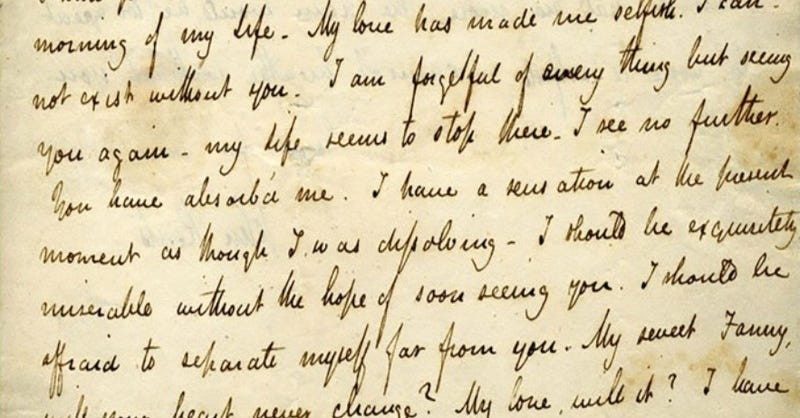 morning of my Life - My love has made me selfish. I can-
not exist without you - I am forgetful of every thing but seeing
you again - my Life seems to stop there - I see no further.
You have absorb'd me. I have a sensation at the present
moment as though I was diſsolving - I should be exquisitely
miserable without the hope of soon seeing you. I should be
affraid to separate myself far from you. My sweet Fanny,
will your heart never change? My love, will it? I have